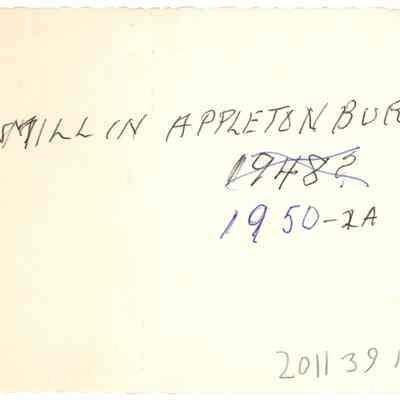 MILL IN APPLETON BUR
1948?
1950-2A
2011 39 1